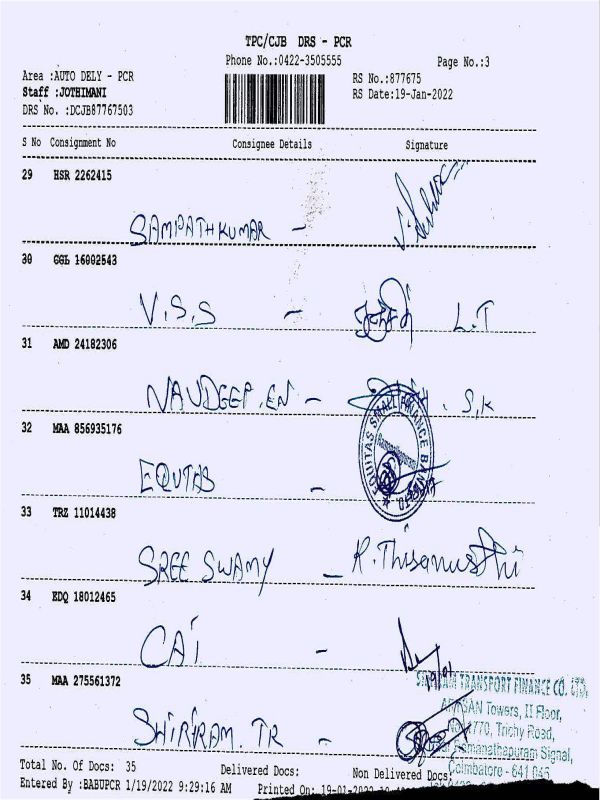 TPC/CJB DRS - PCR
Phone No.:0422-3505555 Page No.:3
Area :AUTO DELY - PCR RS No.:877675
Staff :JOTHIMANI RS Date:19-Jan-2022
DRS No. :DCJB87767503
S No Consignment No Consignee Details Signature
29 HSR 2262415
SAMPATHKUMAR -
30 GGL 16002543
V.S.S - L.T
31 AMD 24182306
NAVDEEP.EN - S.K
32 MAA 856935176
EQUTAS -
EQUITAS SMALL FINANCE BANK LTD
33 TRZ 11014438
SREE SWAMY -
34 EDQ 18012465
CAi -
19/01
35 MAA 275561372
TRANSPORT FINANCE CO. LTD.
Towers, II Floor,
Trichy Road,
SHRiRAM. TR - Ramanathapuram Signal,
Coimbatore - 641 045
Total No. Of Docs: 35 Delivered Docs: Non Delivered Docs:
Entered By :BABUPCR 1/19/2022 9:29:16 AM Printed On: